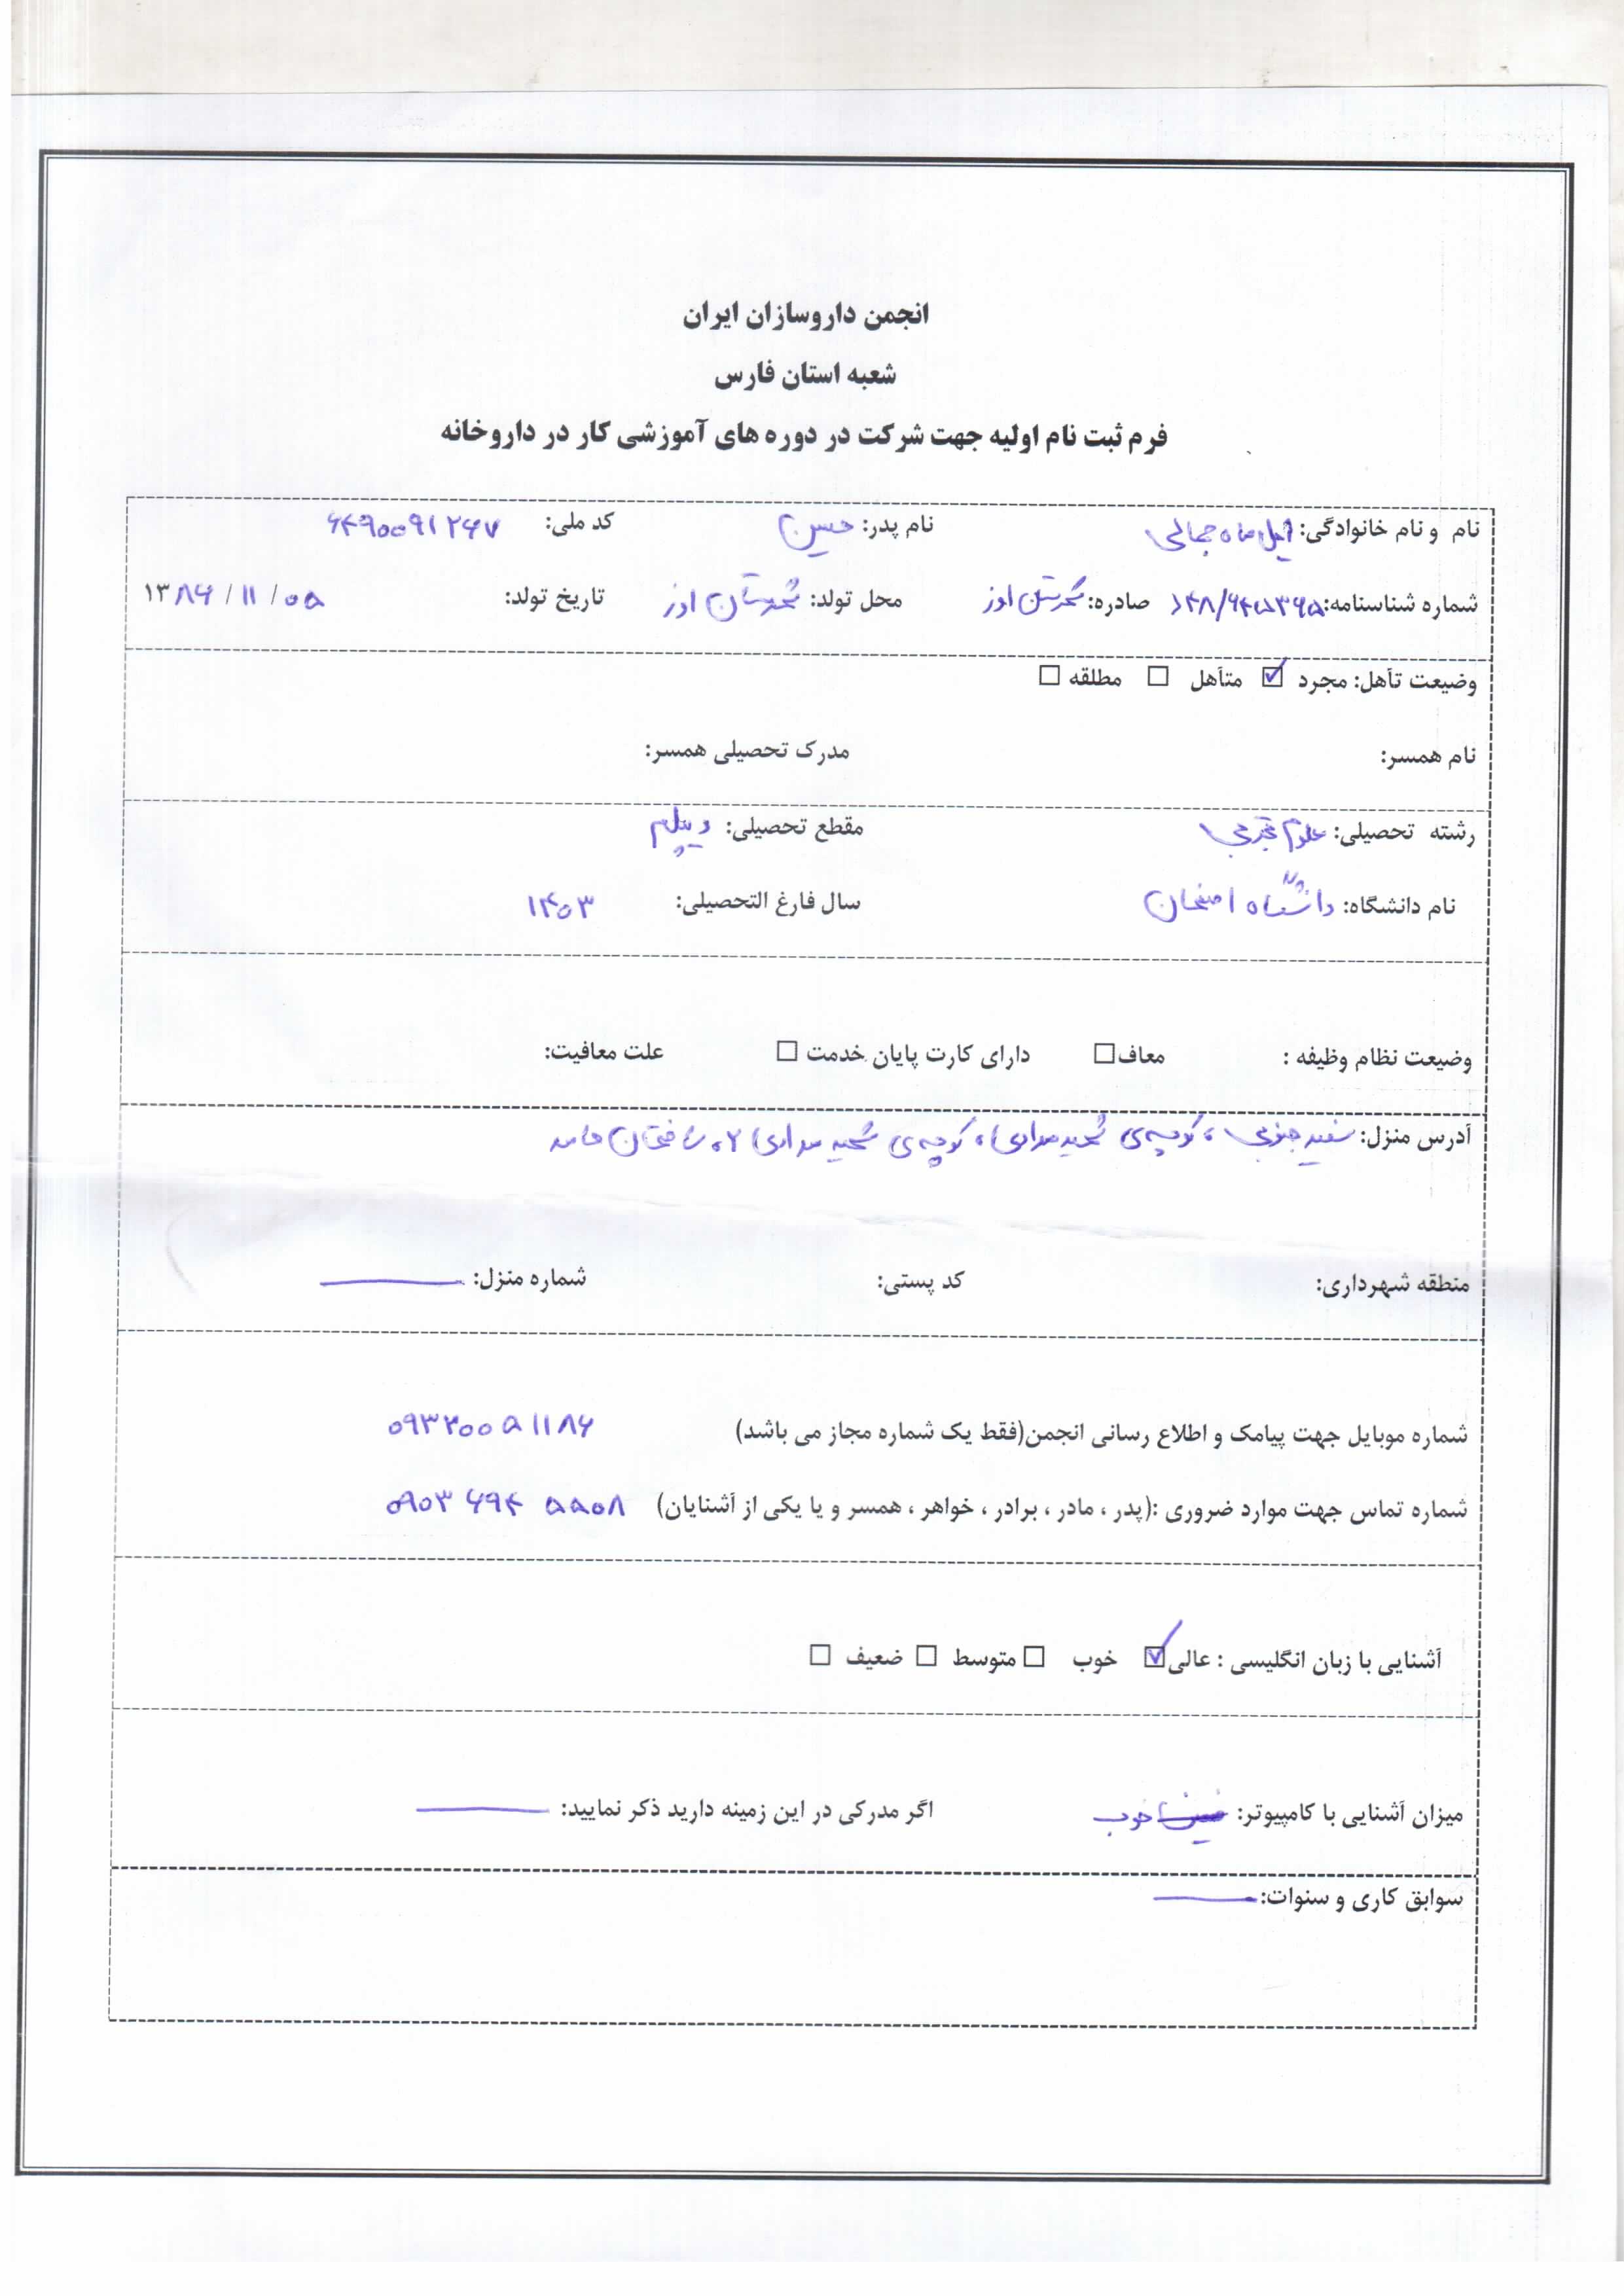 انجمن داروسازان ایران
شعبه استان فارس
فرم ثبت نام اولیه جهت شرکت در دوره های آموزشی کار در داروخانه
نام و نام خانوادگی: ایل ماه جمالی نام پدر: حسین کد ملی: ۶۴۹۰۰۹۱۲۶۷
شماره شناسنامه: صادره: شهرستان اوز محل تولد: شهرستان اوز تاریخ تولد: ۱۳۸۶/۱۱/۰۵
وضیعت تأهل: مجرد ☑ متأهل ☐ مطلقه ☐
نام همسر: مدرک تحصیلی همسر:
رشته تحصیلی: علوم تجربی مقطع تحصیلی: دیپلم
نام دانشگاه: دانشگاه اصفهان سال فارغ التحصیلی: ۱۴۰۳
وضیعت نظام وظیفه : معاف ☐ دارای کارت پایان خدمت ☐ علت معافیت:
آدرس منزل: جنوبی، کوچه‌ی شهید، کوچه‌ی شهید ۲، ساختمان حامد
منطقه شهرداری: کد پستی: شماره منزل: ——
شماره موبایل جهت پیامک و اطلاع رسانی انجمن(فقط یک شماره مجاز می باشد) ۰۹۳۳۰۰۵۱۱۸۶
شماره تماس جهت موارد ضروری :(پدر ، مادر ، برادر ، خواهر ، همسر و یا یکی از آشنایان) ۰۹۰۳ ۶۹۴ ۵۵۰۸
آشنایی با زبان انگلیسی : عالی ☑ خوب ☐ متوسط ☐ ضعیف ☐
میزان آشنایی با کامپیوتر: خوب اگر مدرکی در این زمینه دارید ذکر نمایید: ——
سوابق کاری و سنوات: ——